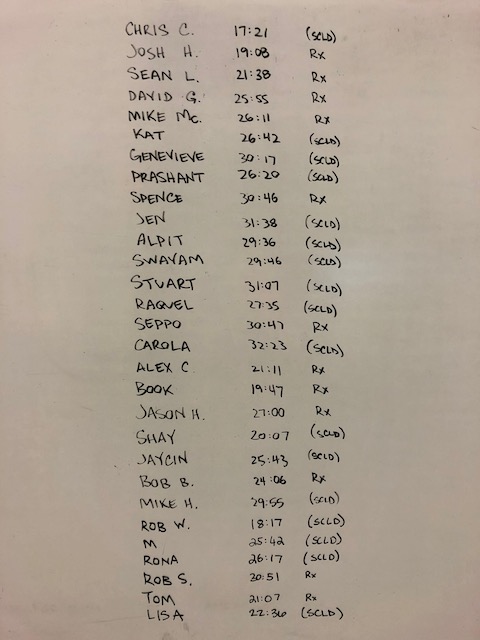 CHRIS C. 17:21 (SCLD)
JOSH H. 19:08 Rx
SEAN L. 21:38 Rx
DAVID G. 25:55 Rx
MIKE Mc. 26:11 Rx
KAT 26:42 (SCLD)
GENEVIEVE 30:17 (SCLD)
PRASHANT 26:20 (SCLD)
SPENCE 30:46 Rx
JEN 31:38 (SCLD)
ALPIT 29:36 (SCLD)
SWAYAM 29:46 (SCLD)
STUART 31:07 (SCLD)
RAQUEL 27:35 (SCLD)
SEPPO 30:47 Rx
CAROLA 32:23 (SCLD)
ALEX C. 21:11 Rx
BOOK 19:47 Rx
JASON H. 27:00 Rx
SHAY 20:07 (SCLD)
JAYCIN 25:43 (SCLD)
BOB B. 24:06 Rx
MIKE H. 29:55 (SCLD)
ROB W. 18:17 (SCLD)
M 25:42 (SCLD)
RONA 26:17 (SCLD)
ROB S. 20:51 Rx
TOM 21:07 Rx
LISA 22:36 (SCLD)